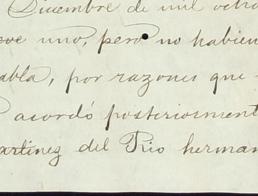 Diciembre de mil ocho
eve uno, pero no habien
abla, por razones que
acordó posteriorment
artinez del Rio herman